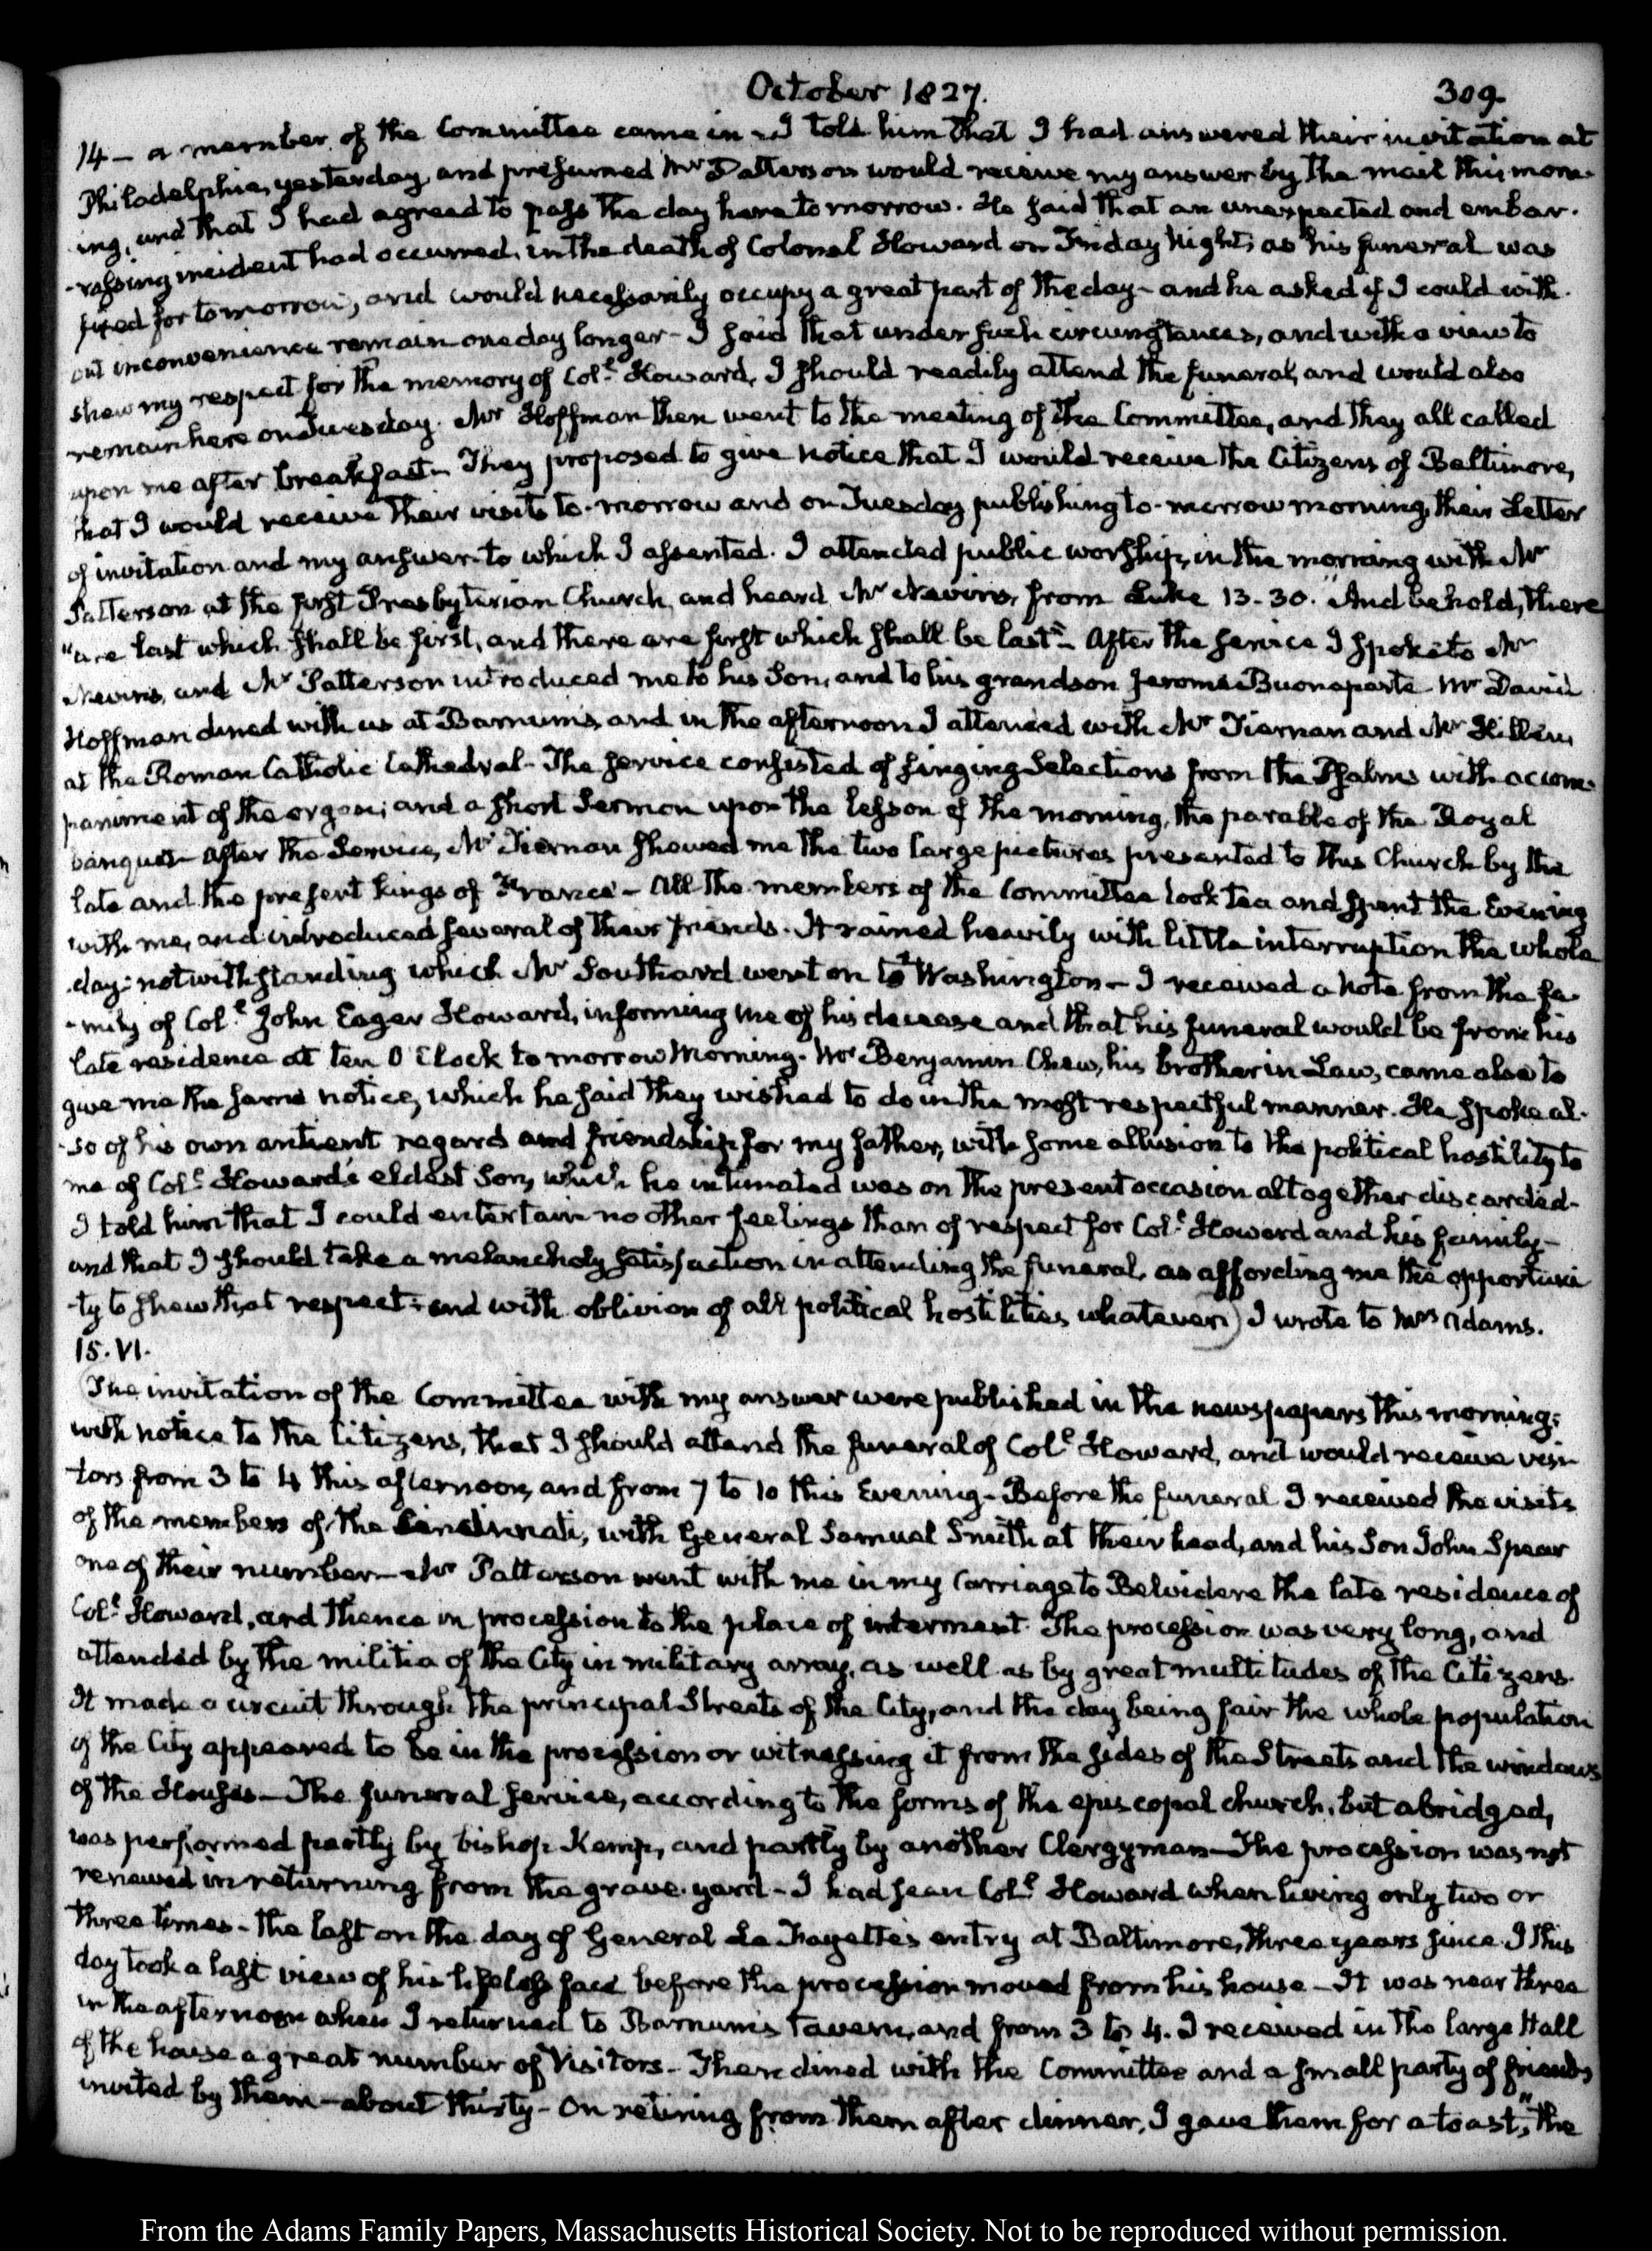 October 1827. 309.
14 — a member of the Committee came in — I told him that I had answered their invitation at
Philadelphia, yesterday, and presumed Mr Patterson would receive my answer by the mail this morn-
ing, and that I had agreed to pass the day here to morrow. He said that an unexpected and embar-
-rassing incident had occurred, in the death of Colonel Howard on Friday Night, as his funeral was
fixed for to morrow, and would necessarily occupy a great part of the day — and he asked if I could with-
out inconvenience remain one day longer — I said that under such circumstances, and with a view to
shew my respect for the memory of Coll. Howard, I should readily attend the funeral, and would also
remain here on Tuesday. Mr Hoffman then went to the meeting of the Committee, and they all called
upon me after breakfast — They proposed to give notice that I would receive the Citizens of Baltimore,
that I would receive their visits to-morrow and on Tuesday publishing to-morrow morning, their Letter
of invitation and my answer to which I assented. I attended public worship, in the morning with Mr
Patterson at the first Presbyterian Church, and heard Mr Nevins, from Luke 13-30. "And behold, there
"are last which shall be first, and there are first which shall be last" — After the service I spoke to Mr
Nevins, and Mr Patterson introduced me to his Son, and to his grandson Jerome Buonaparte — Mr David
Hoffman dined with us at Barnum's, and in the afternoon I attended with Mr Tiernan and Mr Hillen,
at the Roman Catholic Cathedral — The service consisted of singing Selections from the Psalms with accom-
paniment of the organ; and a short Sermon upon the lesson of the morning, the parable of the Royal
banquet — After the Service, Mr Tiernan showed me the two large pictures presented to this Church by the
late and the present kings of France — All the members of the Committee took tea and spent the Evening
with me, and introduced several of their friends. It rained heavily with little interruption the whole
day: notwithstanding which Mr Southard went on to Washington — I received a note from the fa-
-mily of Coll. John Eager Howard, informing me of his decease and that his funeral would be from his
late residence at ten O'Clock to morrow Morning. Mr Benjamin Chew, his brother in Law, came also to
give me the same notice, which he said they wished to do in the most respectful manner. He spoke al-
-so of his own antient regard and friendship for my father, with some allusion to the political hostility to
me of Coll. Howard's eldest Son, which he intimated was on the present occasion altogether discarded —
I told him that I could entertain no other feelings than of respect for Coll. Howard and his family —
and that I should take a melancholy satisfaction in attending the funeral, as affording me the opportuni
-ty to shew that respect: and with oblivion of all political hostilities whatever) I wrote to Mrs Adams.
15. VI.
The invitation of the Committee with my answer were published in the newspapers this morning;
with notice to the Citizens, that I should attend the funeral of Coll. Howard, and would receive visi-
tors from 3 to 4 this afternoon, and from 7 to 10 this Evening — Before the funeral I received the visits
of the members of the Cincinnati, with General Samuel Smith at their head, and his Son John Spear
one of their number — Mr Patterson went with me in my Carriage to Belvidere the late residence of
Coll. Howard, and thence in procession to the place of interment. The procession was very long, and
attended by the militia of the City in military array, as well as by great multitudes of the Citizens.
It made a circuit through the principal Streets of the City, and the day being fair the whole population
of the City appeared to be in the procession or witnessing it from the sides of the Streets and the windows
of the Houses — The funeral service, according to the forms of the episcopal church, but abridged,
was performed partly by bishop Kemp, and partly by another Clergyman — The procession was not
renewed in returning from the grave-yard — I had seen Coll. Howard when living only two or
three times — the last on the day of General La Fayette's entry at Baltimore, three years since. I this
day took a last view of his lifeless face before the procession moved from his house — It was near three
in the afternoon when I returned to Barnum's tavern, and from 3 to 4. I received in the large Hall
of the house a great number of Visitors — Then dined with the Committee and a small party of friends
invited by them — about thirty — On retiring from them after dinner, I gave them for a toast, "the
From the Adams Family Papers, Massachusetts Historical Society. Not to be reproduced without permission.